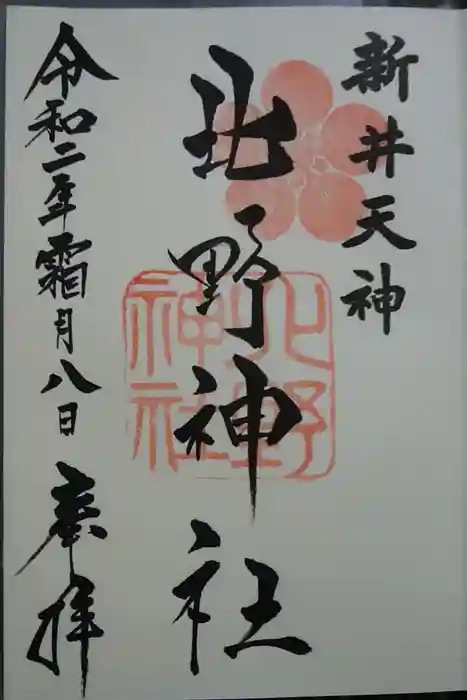 新井天神
北野神社
北野神社
令和二年霜月八日 奉拝